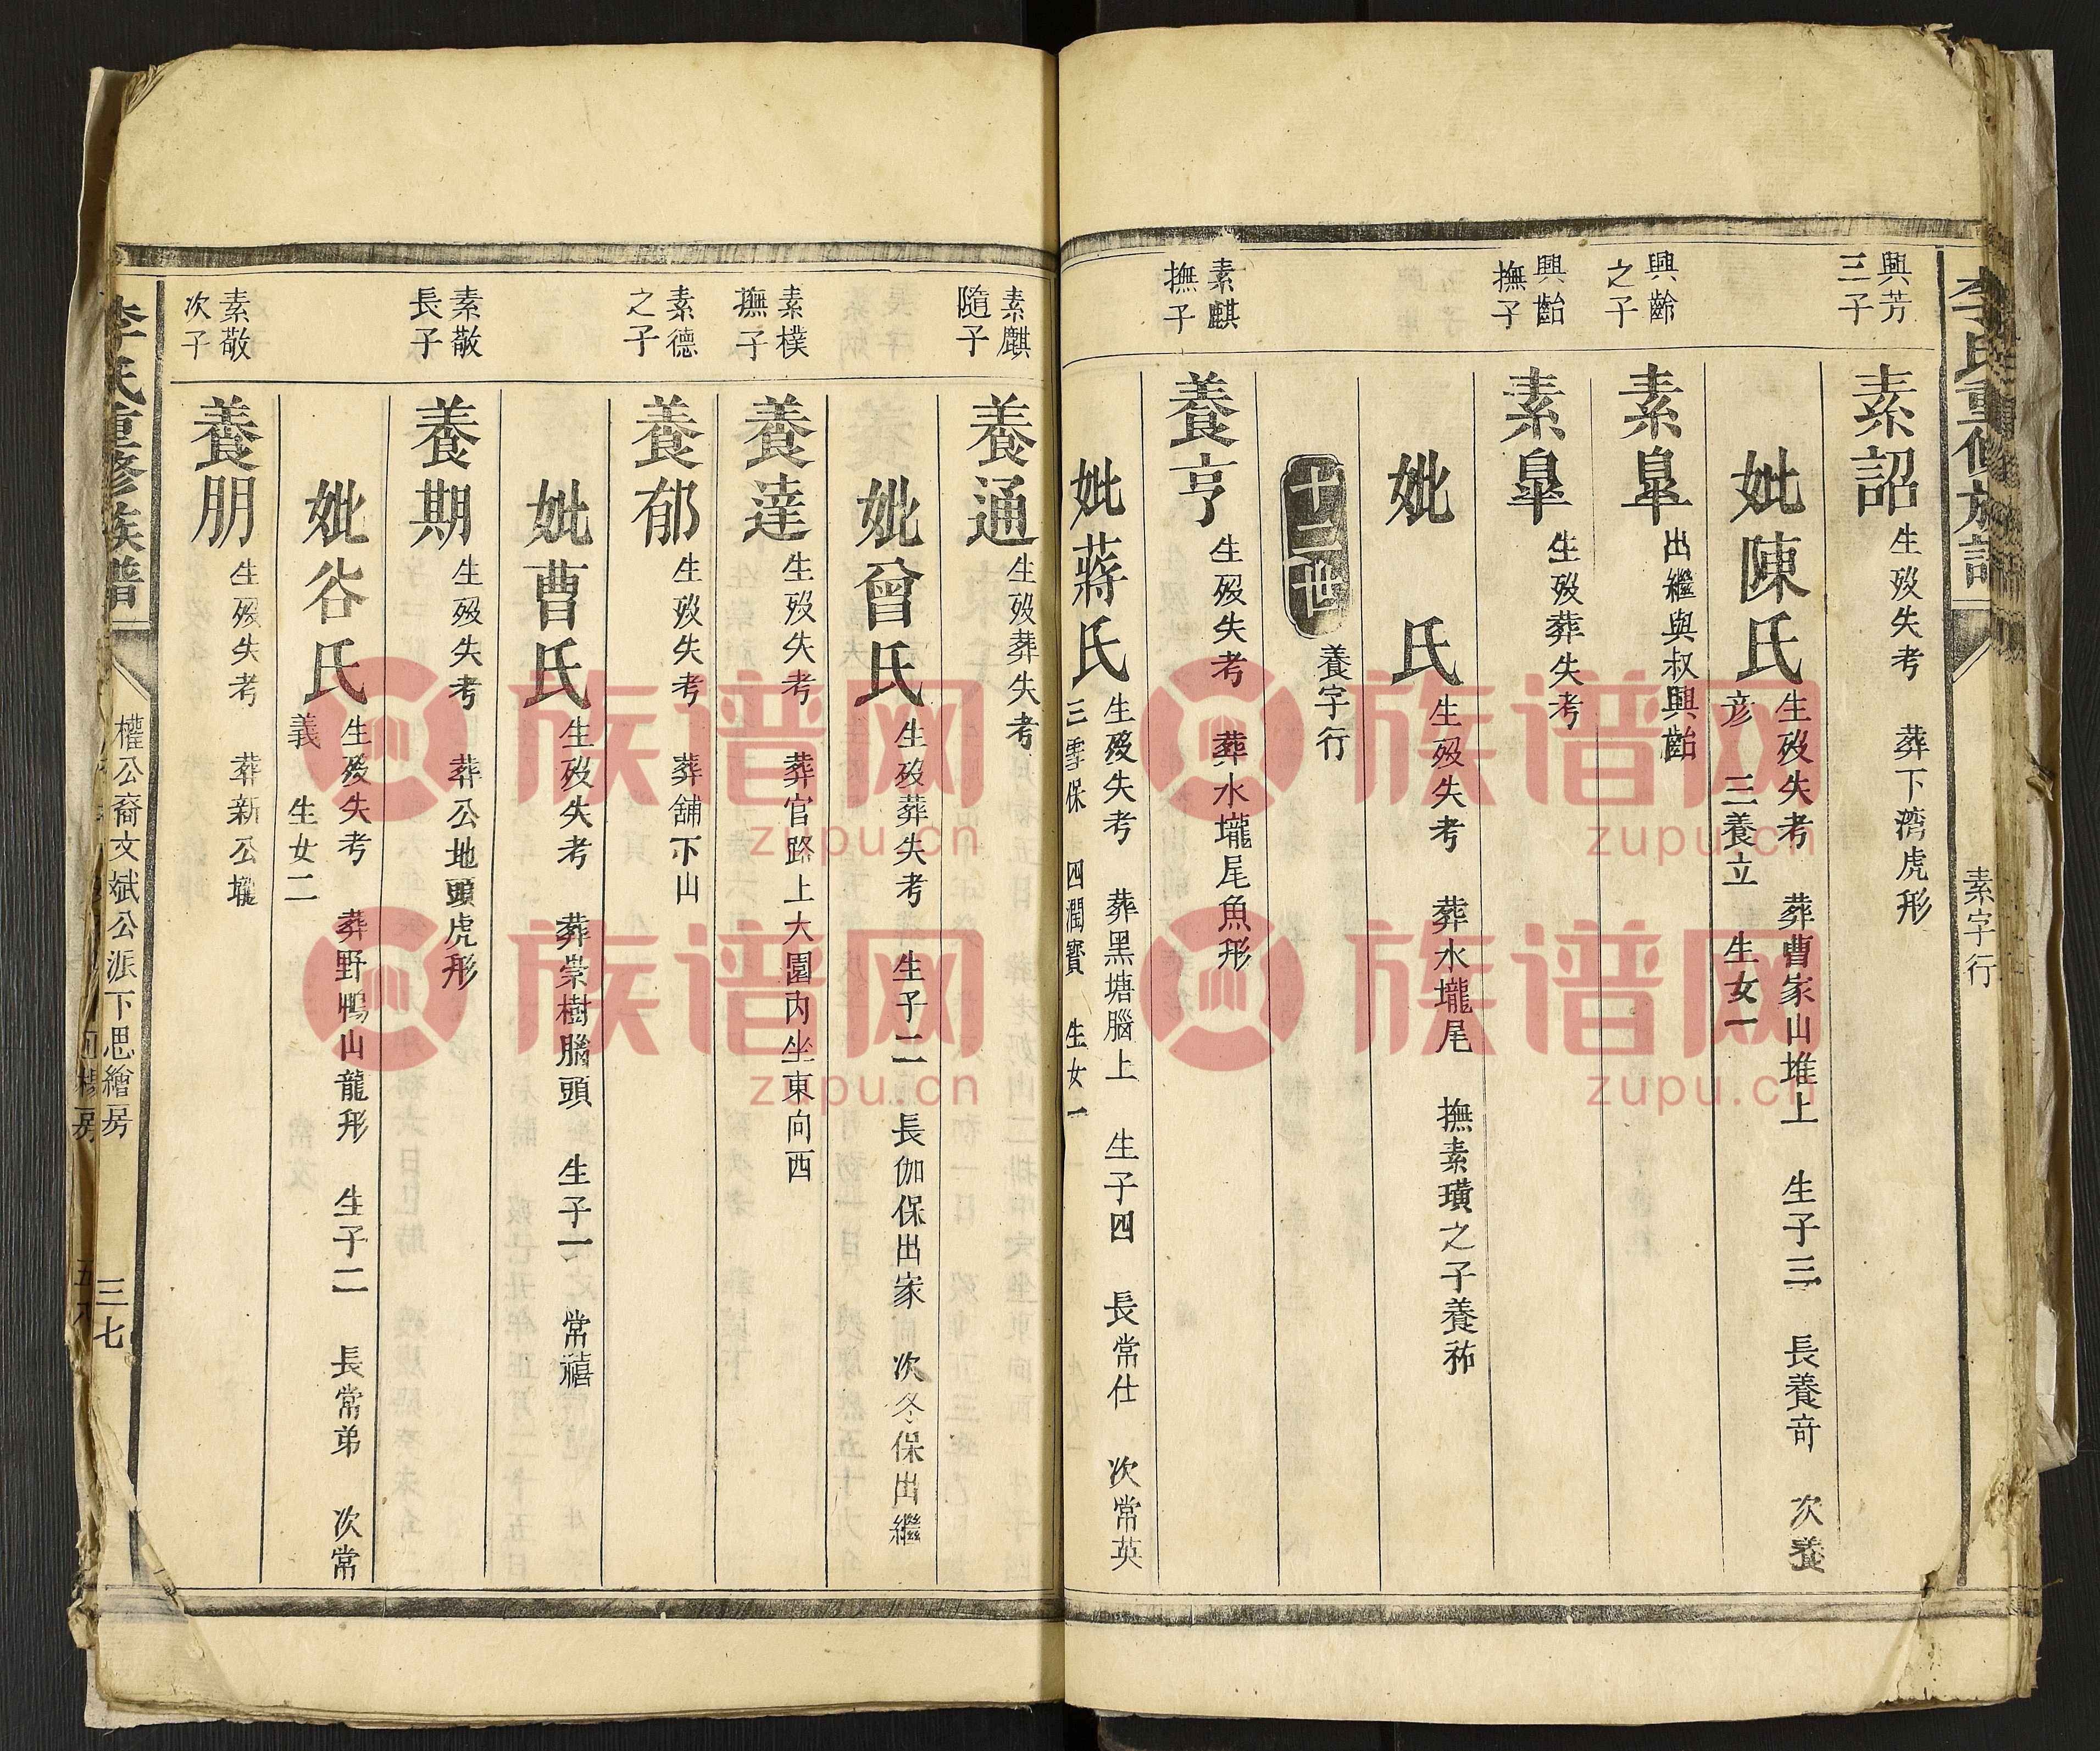 李氏重修族譜
素字行
興芳
三子
素詔
生歿失考　葬下湾虎形
妣陳氏
生歿失考　葬曹家山堆上　生子三　長養奇　次養
彦　三養立　生女一
興齡
之子
素皐
出繼與叔興齝
興齝
撫子
素皐
生歿葬失考
妣　氏
生歿失考　葬水壠尾　撫素璜之子養祢
十二世
養字行
素麒
撫子
養亨
生歿失考　葬水壠尾魚形
妣蔣氏
生歿失考　葬黑塘腦上　生子四　長常仕　次常英
三雪保　四潤寶　生女一
素麒
隨子
養通
生歿葬失考
妣曾氏
生歿葬失考　生子二　長伽保出家　次冬保出繼
素樸
撫子
養達
生歿失考　葬官路上大園內坐東向西
素德
之子
養郁
生歿失考　葬舖下山
妣曹氏
生歿失考　葬崇樹腦頭　生子一　常禧
素敬
長子
養期
生歿失考　葬公地頭虎形
妣谷氏
生歿失考　葬野鴨山龍形　生子二　長常弟　次常
義　生女二
素敬
次子
養朋
生歿失考　葬新公壠
李氏重修族譜
權公裔文斌公派下思繪房
三七
族谱网
zupu.cn
族谱网
zupu.cn
族谱网
zupu.cn
族谱网
zupu.cn